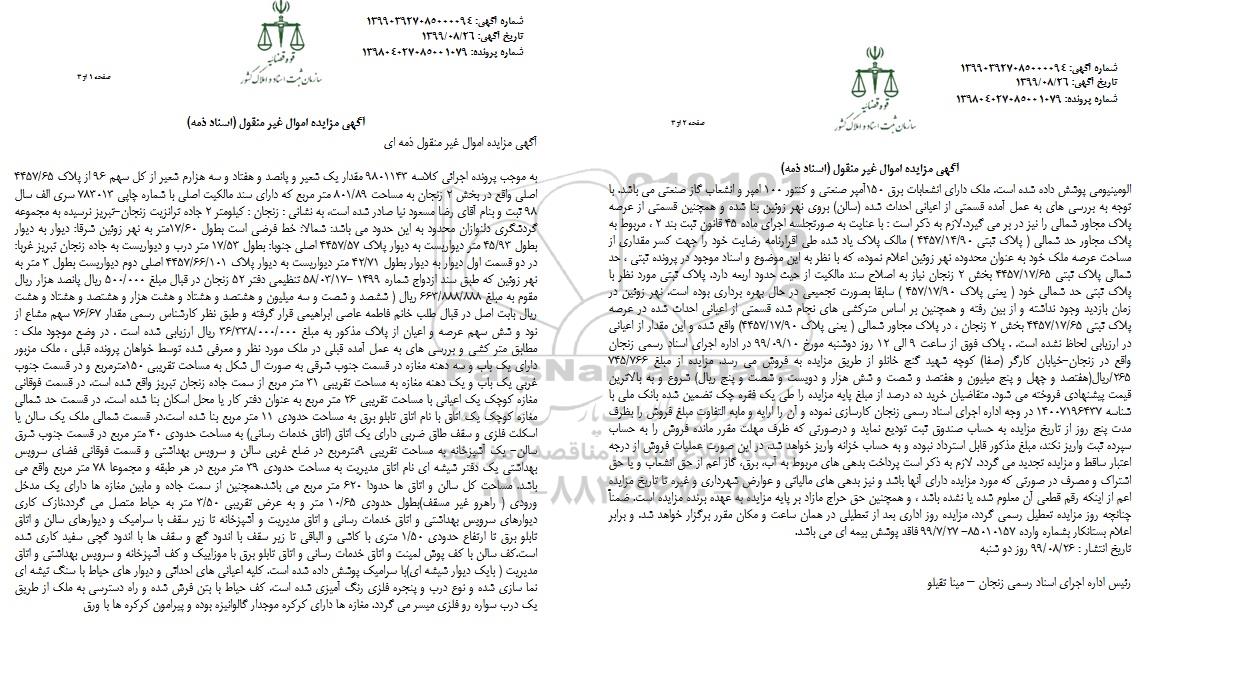 شماره آگهی: ۱۳۹۹۰۳۹۲۷۰۸۵۰۰۰۰۹۴
تاریخ آگهی: ۱۳۹۹/۰۸/۲۶
شماره پرونده: ۱۳۹۸۰۴۰۲۷۰۸۵۰۰۱۰۷۹
قوه قضائیه
سازمان ثبت اسناد و املاک کشور
صفحه ۱ از ۳
آگهی مزایده اموال غیر منقول (اسناد ذمه)
آگهی مزایده اموال غیر منقول ذمه ای
به موجب پرونده اجرائی کلاسه ۹۸۰۱۱۴۳ مقدار یک شعیر و پانصد و هفتاد و سه هزارم شعیر از کل سهم ۹۶ از پلاک ۴۴۵۷/۶۵
اصلی واقع در بخش ۲ زنجان به مساحت ۸۰۱/۸۹ متر مربع که دارای سند مالکیت اصلی با شماره چاپی ۷۸۳۰۱۳ سری الف سال
۹۸ ثبت و بنام آقای رضا مسعود نیا صادر شده است، به نشانی : زنجان : کیلومتر ۲ جاده ترانزیت زنجان-تبریز نرسیده به مجموعه
گردشگری دلنوازان محدود به این حدود می باشد: شمالا: خط فرضی است بطول ۱۷/۶۰متر به نهر زوئین شرقا: دیوار به دیوار
بطول ۴۵/۹۳ متر دیواریست به دیوار پلاک ۴۴۵۷/۵۷ اصلی جنوبا: بطول ۱۷/۵۲ متر درب و دیواریست به جاده زنجان تبریز غربا:
در دو قسمت اول دیوار به دیوار بطول ۴۲/۷۱ متر دیواریست به دیوار پلاک ۴۴۵۷/۶۶/۱۰۱ اصلی دوم دیواریست بطول ۳ متر به
نهر زوئین که طبق سند ازدواج شماره ۱۴۹۹ -۵۸/۰۳/۱۷ تنظیمی دفتر ۵۲ زنجان در قبال مبلغ ۵۰۰/۰۰۰ ریال پانصد هزار ریال
مقوم به مبلغ ۶۶۳/۸۸۸/۸۸۸ ریال ( ششصد و شصت و سه میلیون و هشتصد و هشتاد و هشت هزار و هشتصد و هشتاد و هشت
ریال بابت اصل در قبال طلب خانم فاطمه عاصی ابراهیمی قرار گرفته و طبق نظر کارشناس رسمی مقدار ۷۶/۶۷ سهم مشاع از
نود و شش سهم عرصه و اعیان از پلاک مذکور به مبلغ ۳۶/۳۳۸/۰۰۰/۰۰۰ ریال ارزیابی شده است . در وضع موجود ملک :
مطابق متر کشی و بررسی های به عمل آمده قبلی در ملک مورد نظر و معرفی شده توسط خواهان پرونده قبلی ، ملک مزبور
دارای یک باب و سه دهنه مغازه در قسمت جنوب شرقی به صورت ال شکل به مساحت تقریبی ۱۵۰مترمربع و در قسمت جنوب
غربی یک باب و یک دهنه مغازه به مساحت تقریبی ۳۱ متر مربع از سمت جاده زنجان تبریز واقع شده است. در قسمت فوقانی
مغازه کوچک یک اعیانی با مساحت تقریبی ۲۶ متر مربع به عنوان دفتر کار یا محل اسکان بنا شده است. در قسمت حد شمالی
مغازه کوچک یک اتاق با نام اتاق تابلو برق به مساحت حدودی ۱۱ متر مربع بنا شده است.در قسمت شمالی ملک یک سالن با
اسکلت فلزی و سقف طاق ضربی دارای یک اتاق (اتاق خدمات رسانی) به مساحت حدودی ۴۰ متر مربع در قسمت جنوب شرق
سالن- یک آشپزخانه به مساحت تقریبی ۹مترمربع در ضلع غربی سالن و سرویس بهداشتی و قسمت فوقانی فضای سرویس
بهداشتی یک دفتر شیشه ای نام اتاق مدیریت به مساحت حدودی ۳۹ متر مربع در هر طبقه و مجموعا ۷۸ متر مربع واقع می
باشد. مساحت کل سالن و اتاق ها حدودا ۶۲۰ متر مربع می باشد.همچنین از سمت جاده و مابین مغازه ها دارای یک مدخل
ورودی ( راهرو غیر مسقف)بطول حدودی ۱۰/۶۵ متر و به عرض تقریبی ۳/۵۰ متر به حیاط متصل می گردد.نازک کاری
دیوارهای سرویس بهداشتی و اتاق خدمات رسانی و اتاق مدیریت و آشپزخانه تا زیر سقف با سرامیک و دیوارهای سالن و اتاق
تابلو برق تا ارتفاع حدودی ۱/۵۰ متری با کاشی و الباقی تا زیر سقف با اندود گچ و سقف ها با اندود گچی سفید کاری شده
است.کف سالن با کف پوش لمینت و اتاق خدمات رسانی و اتاق تابلو برق با موزاییک و کف آشپزخانه و سرویس بهداشتی و اتاق
مدیریت ( بایک دیوار شیشه ای)با سرامیک پوشش داده شده است. کلیه اعیانی های احداثی و دیوار های حیاط با سنگ تیشه ای
نما سازی شده و نوع درب و پنجره فلزی رنگ آمیزی شده است. کف حیاط با بتن فرش شده و راه دسترسی به ملک از طریق
یک درب سواره رو فلزی میسر می گردد. مغازه ها دارای کرکره موجدار گالوانیزه بوده و پیرامون کرکره ها با ورق
شماره آگهی: ۱۳۹۹۰۳۹۲۷۰۸۵۰۰۰۰۹۴
تاریخ آگهی: ۱۳۹۹/۰۸/۲۶
شماره پرونده: ۱۳۹۸۰۴۰۲۷۰۸۵۰۰۱۰۷۹
قوه قضائیه
سازمان ثبت اسناد و املاک کشور
صفحه ۲ از ۳
آگهی مزایده اموال غیر منقول (اسناد ذمه)
الومینیومی پوشش داده شده است. ملک دارای انشعابات برق ۱۵۰آمپر صنعتی و کنتور ۱۰۰ آمپر و انشعاب گاز صنعتی می باشد. با
توجه به بررسی های به عمل آمده قسمتی از اعیانی احداث شده (سالن) بروی نهر زوئین بنا شده و همچنین قسمتی از عرصه
پلاک مجاور شمالی را نیز در بر می گیرد.لازم به ذکر است : با عنایت به صورتجلسه اجرای ماده ۴۵ قانون ثبت بند ۲ ، مربوط به
پلاک مجاور حد شمالی ( پلاک ثبتی ۴۴۵۷/۱۴/۹۰ ) مالک پلاک یاد شده طی اقرارنامه رضایت خود را جهت کسر مقداری از
مساحت عرصه ملک خود به عنوان محدوده نهر زوئین اعلام نموده، که با نظر به این موضوع و اسناد موجود در پرونده ثبتی ، حد
شمالی پلاک ثبتی ۴۴۵۷/۱۷/۶۵ بخش ۲ زنجان نیاز به اصلاح سند مالکیت از حیث حدود اربعه دارد. پلاک ثبتی مورد نظر با
پلاک ثبتی حد شمالی خود ( یعنی پلاک ۴۵۷/۱۷/۹۰ ) سابقا بصورت تجمیعی در حال بهره برداری بوده است. نهر زوئین در
زمان بازدید وجود نداشته و از بین رفته و همچنین بر اساس مترکشی های نجام شده قسمتی از اعیانی احداث شده در عرصه
پلاک ثبتی ۴۴۵۷/۱۷/۶۵ بخش ۲ زنجان ، در پلاک مجاور شمالی ( یعنی پلاک ۴۴۵۷/۱۷/۹۰) واقع شده و این مقدار از اعیانی
در ارزیابی لحاظ نشده است. . پلاک فوق از ساعت ۹ الی ۱۲ روز دوشنبه مورخ ۹۹/۰۹/۱۰ در اداره اجرای اسناد رسمی زنجان
واقع در زنجان-خیابان کارگر (صفا) کوچه شهید گنج خانلو از طریق مزایده به فروش می رسد. مزایده از مبلغ ۷۴۵/۷۶۶
/۲۶۵ریال(هفتصد و چهل و پنج میلیون و هفتصد و شصت و شش هزار و دویست و شصت و پنج ریال) شروع و به بالاترین
قیمت پیشنهادی فروخته می شود. متقاضیان خرید ده درصد از مبلغ پایه مزایده را طی یک فقره چک تضمین شده بانک ملی با
شناسه ۱۴۰۰۷۱۹۶۴۳۷ در وجه اداره اجرای اسناد رسمی زنجان کارسازی نموده و آن را آرایه و مابه التفاوت مبلغ فروش را بظرف
مدت پنج روز از تاریخ مزایده به حساب صندوق ثبت تودیع نماید و درصورتی که ظرف مهلت مقرر مانده فروش را به حساب
سپرده ثبت واریز نکند، مبلغ مذکور قابل استرداد نبوده و به حساب خزانه واریز خواهد شد. در این صورت عملیات فروش از درجه
اعتبار ساقط و مزایده تجدید می گردد. لازم به ذکر است پرداخت بدهی های مربوط به آب، برق، گاز اعم از حق انشعاب و یا حق
اشتراک و مصرف در صورتی که مورد مزایده دارای آنها باشد و نیز بدهی های مالیاتی و عوارض شهرداری و غیره تا تاریخ مزایده
اعم از اینکه رقم قطعی آن معلوم شده یا نشده باشد ، و همچنین حق حراج مازاد بر پایه مزایده به عهده برنده مزایده است. ضمناً
چنانچه روز مزایده تعطیل رسمی گردد، مزایده روز اداری بعد از تعطیلی در همان ساعت و مکان مقرر برگزار خواهد شد. و برابر
اعلام بستانکار بشماره وارده ۸۵۰۱۰۱۵۷- ۹۹/۷/۲۷ فاقد پوشش بیمه ای می باشد.
تاریخ انتشار : ۹۹/۰۸/۲۶ روز دو شنبه
رئیس اداره اجرای اسناد رسمی زنجان – مینا تقیلو
ParsNamadData